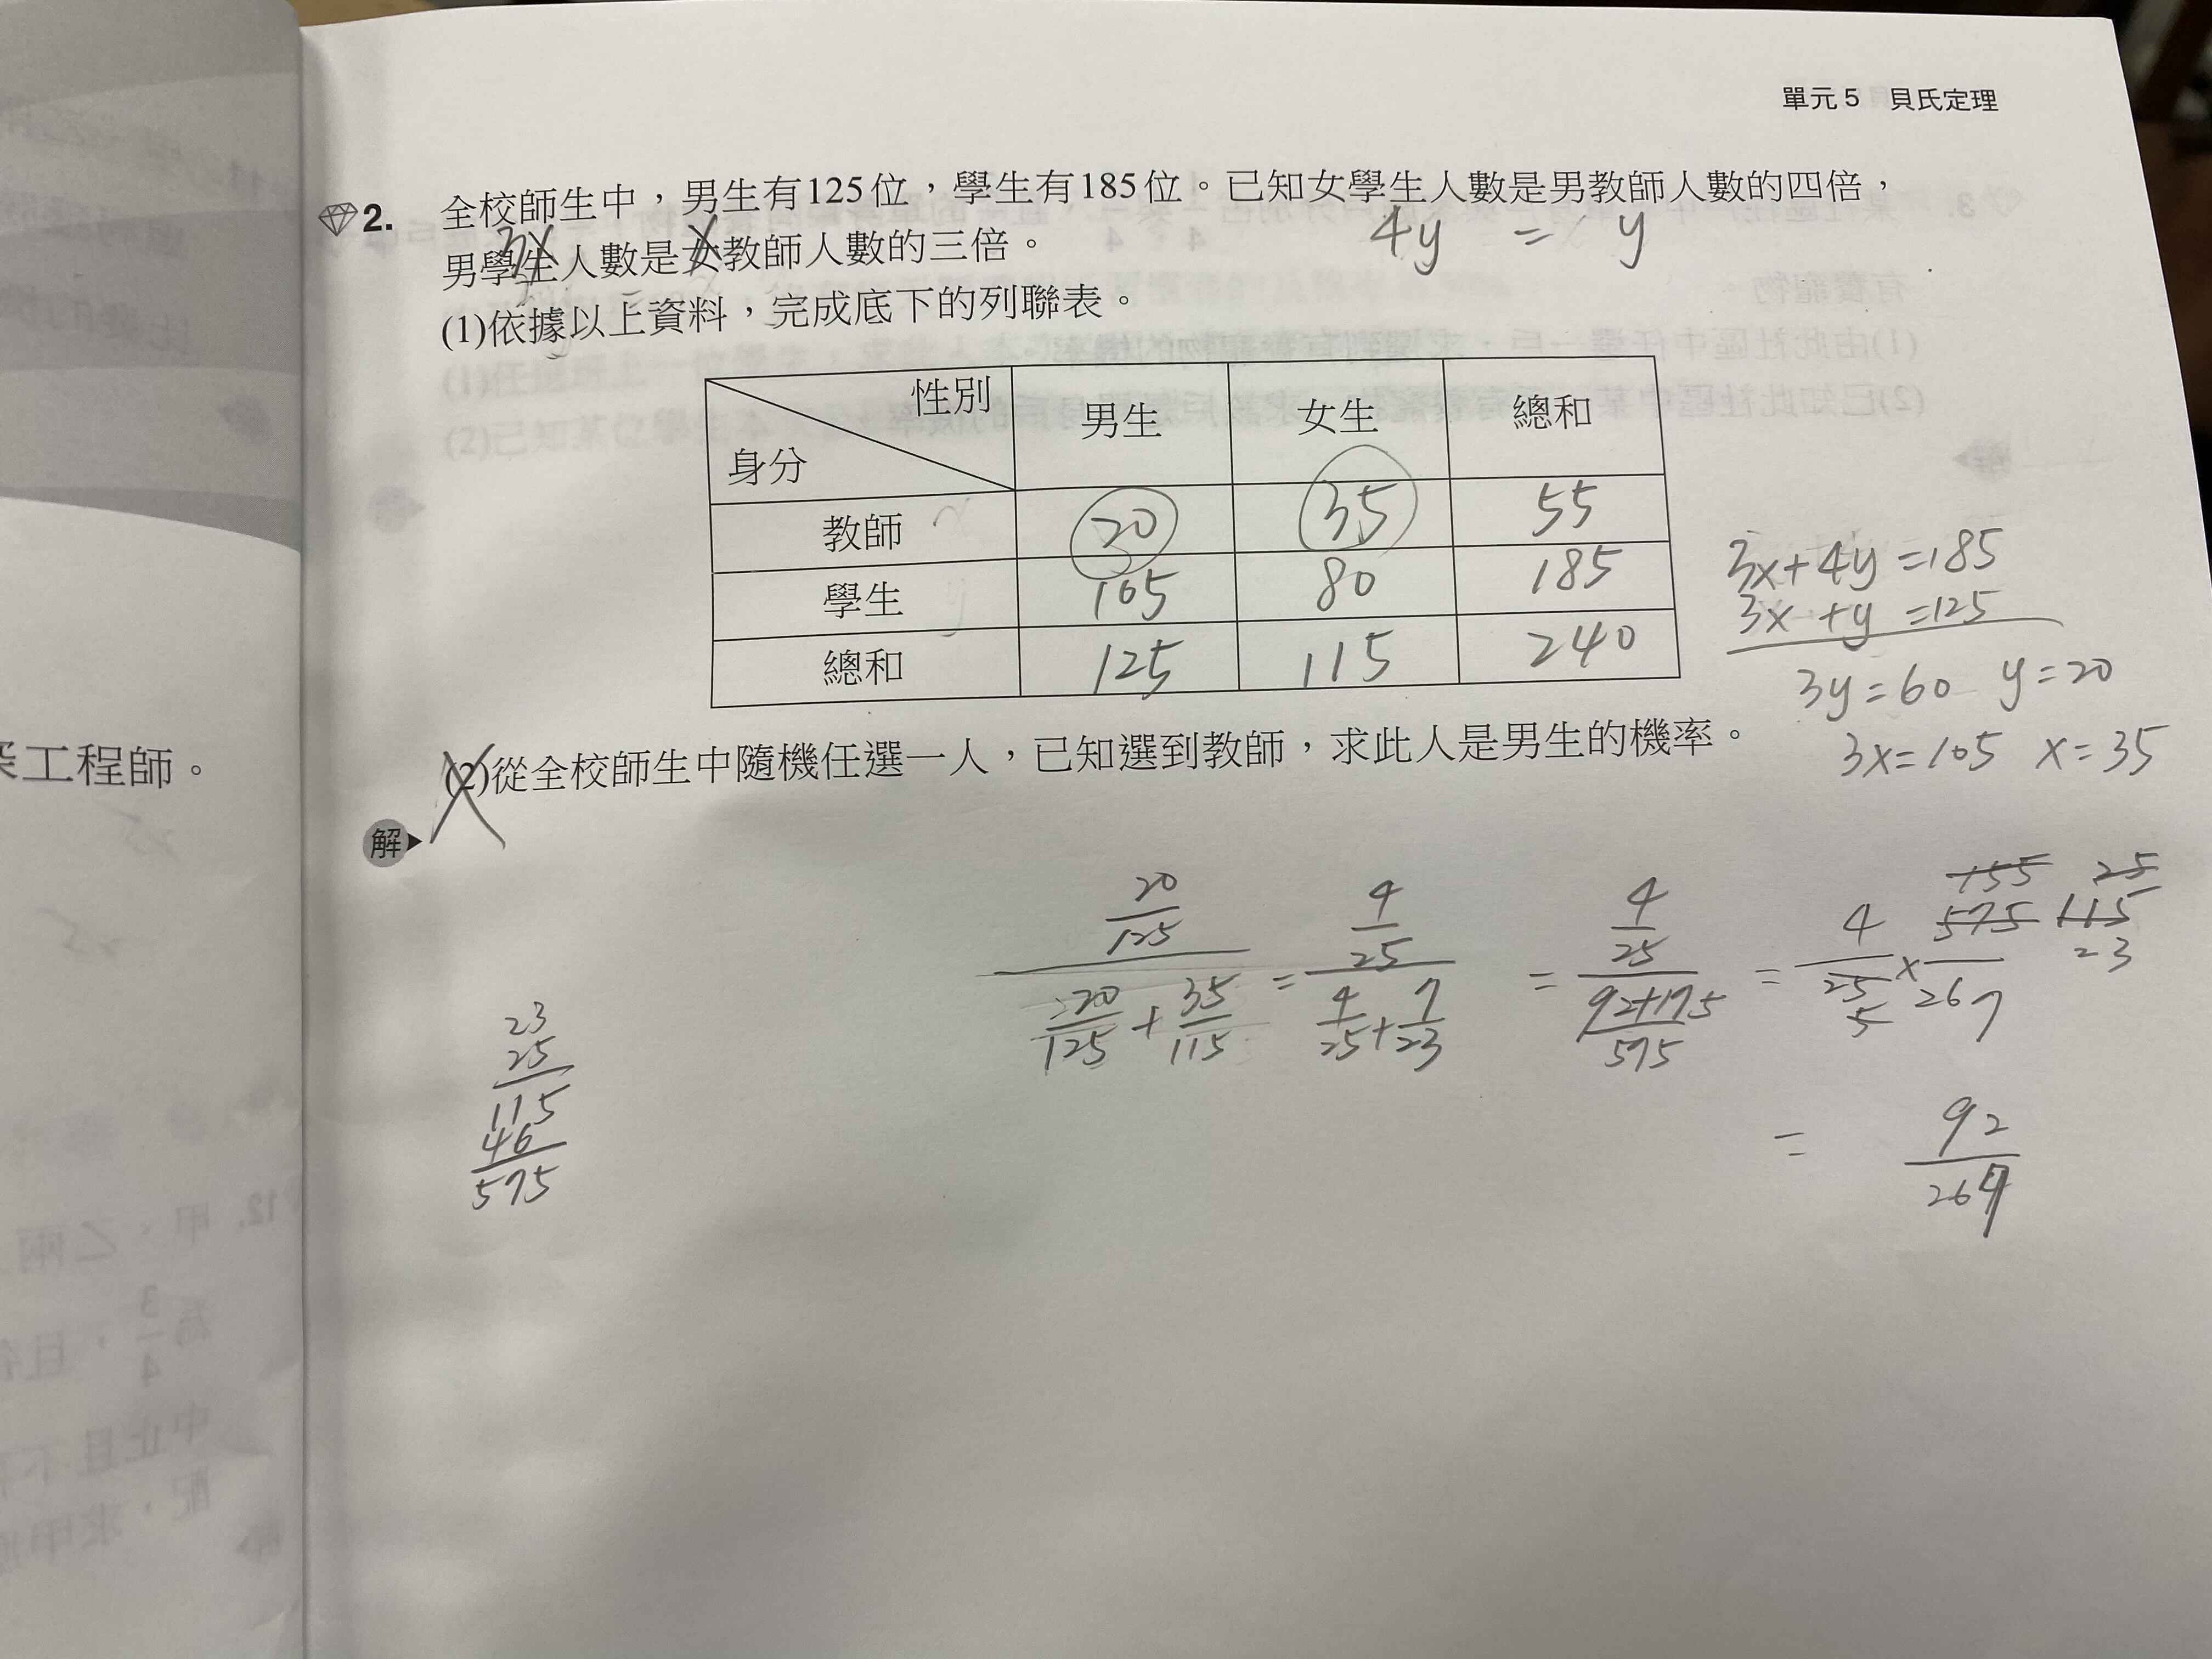 單元5 貝氏定理
2. 全校師生中,男生有125位,學生有185位。已知女學生人數是男教師人數的四倍,
4y = y
男學生人數是女教師人數的三倍。
3x x
(1)依據以上資料,完成底下的列聯表。
性別 身分 男生 女生 總和
教師 20 35 55
學生 105 80 185
總和 125 115 240
3x+4y=185
3x+y=125
3y=60 y=20
3x=105 x=35
(2)從全校師生中隨機任選一人,已知選到教師,求此人是男生的機率。
解
20/125 / (20/125 + 35/115) = 4/25 / (4/25 + 7/23) = 4/25 / ((92+175)/575) = 4/25 × 575/267
5 115 25
23
= 92/267
23
25
115
46
575
工程師。
12. 甲、乙兩
3/4